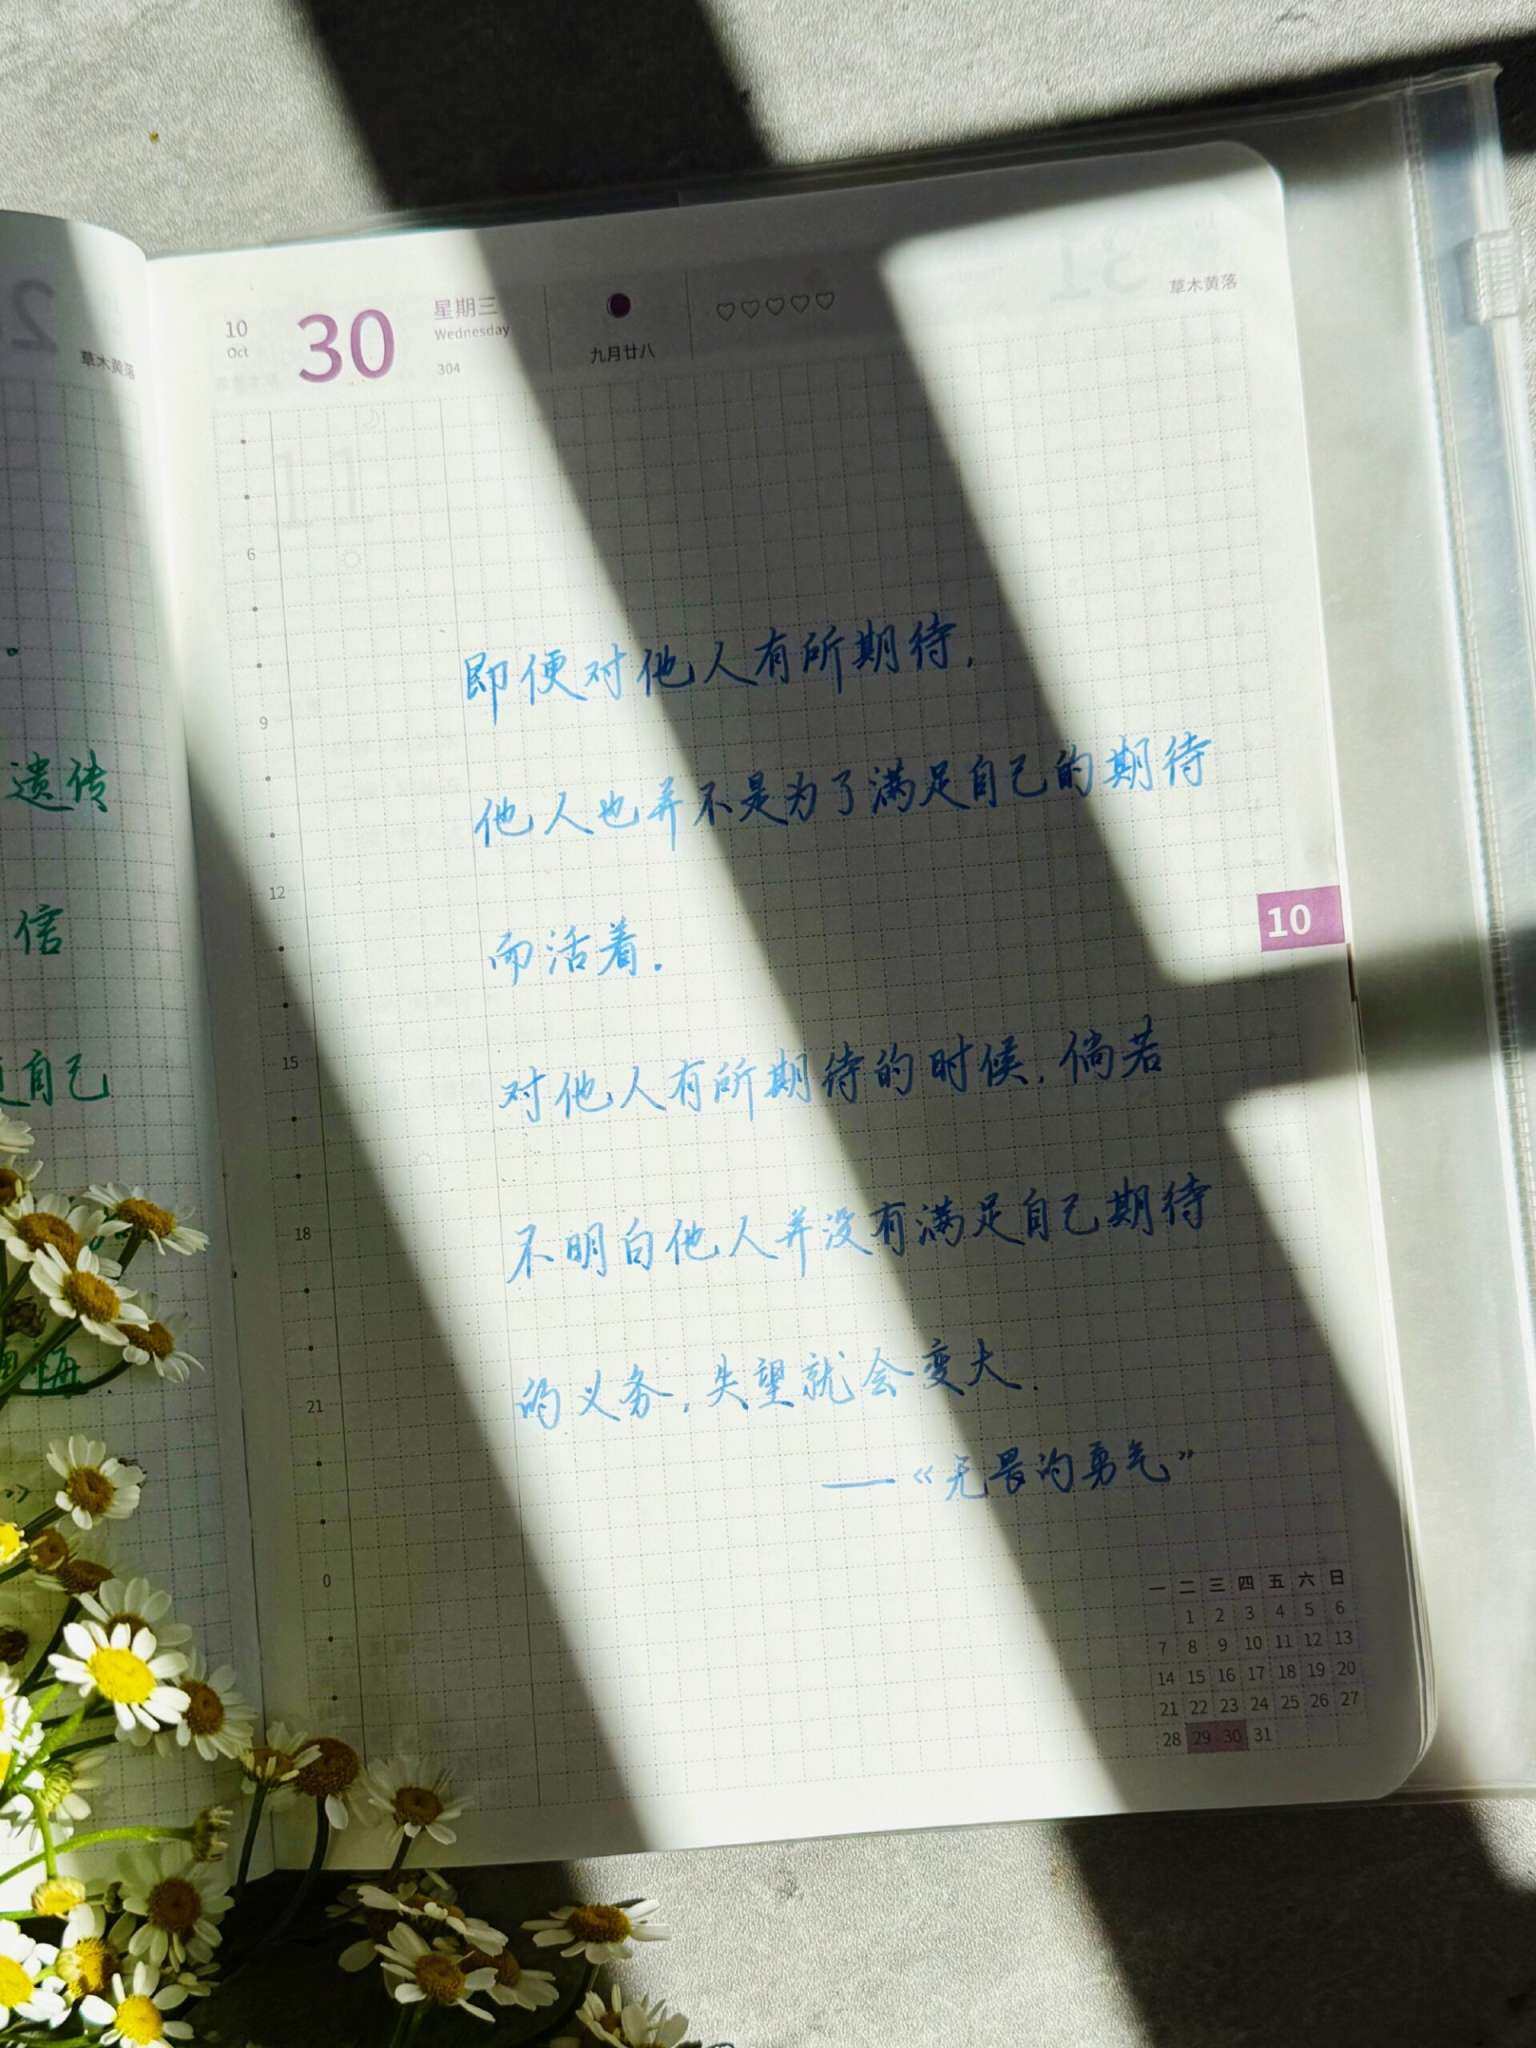 草木黄落
遗传
信
自己
悔
》
10
Oct
30
星期三
Wednesday
304
九月廿八
♡♡♡♡♡
草木黄落
6
9
12
15
18
21
0
即便对他人有所期待,
他人也并不是为了满足自己的期待
而活着.
对他人有所期待的时候,倘若
不明白他人并没有满足自己期待
的义务,失望就会变大.
——《无畏的勇气》
10
一 二 三 四 五 六 日
1 2 3 4 5 6
7 8 9 10 11 12 13
14 15 16 17 18 19 20
21 22 23 24 25 26 27
28 29 30 31